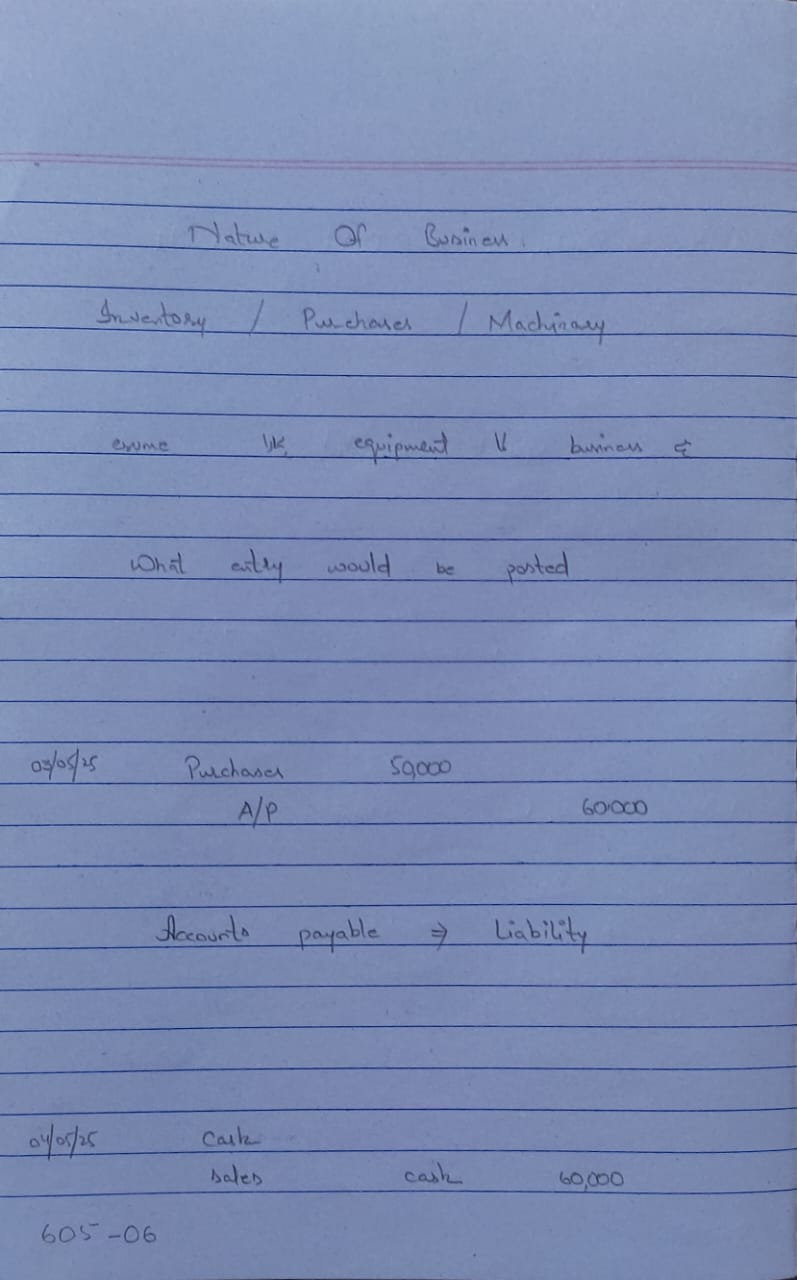 Nature Of Business
Inventory / Purchases / Machinary
equipment business
What entry would be posted
03/05/25 Purchases 50,000
A/P 60000
Accounts payable ⇒ Liability
04/05/25 Cash
Sales cash 60,000
605-06